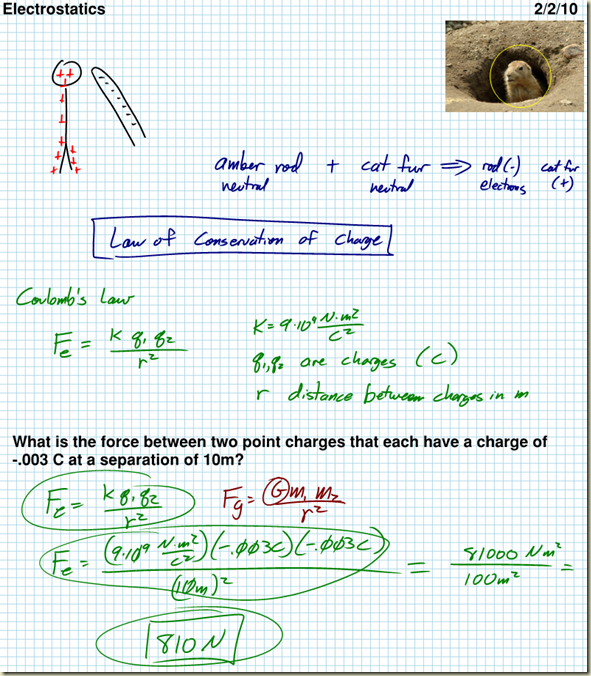 Electrostatics 2/2/10
amber rod + cat fur ⇒ rod (-) cat fur
neutral neutral electrons (+)
Law of Conservation of Charge
Coulomb's Law
Fe = K q1 q2 / r²
K = 9·10⁹ N·m²/C²
q1, q2 are charges (C)
r distance between charges in m
What is the force between two point charges that each have a charge of
-.003 C at a separation of 10m?
Fe = K q1 q2 / r² Fg = G m1 m2 / r²
Fe = (9·10⁹ N·m²/C²)(-.003C)(-.003C) / (10m)² = 81000 Nm² / 100m² =
810 N